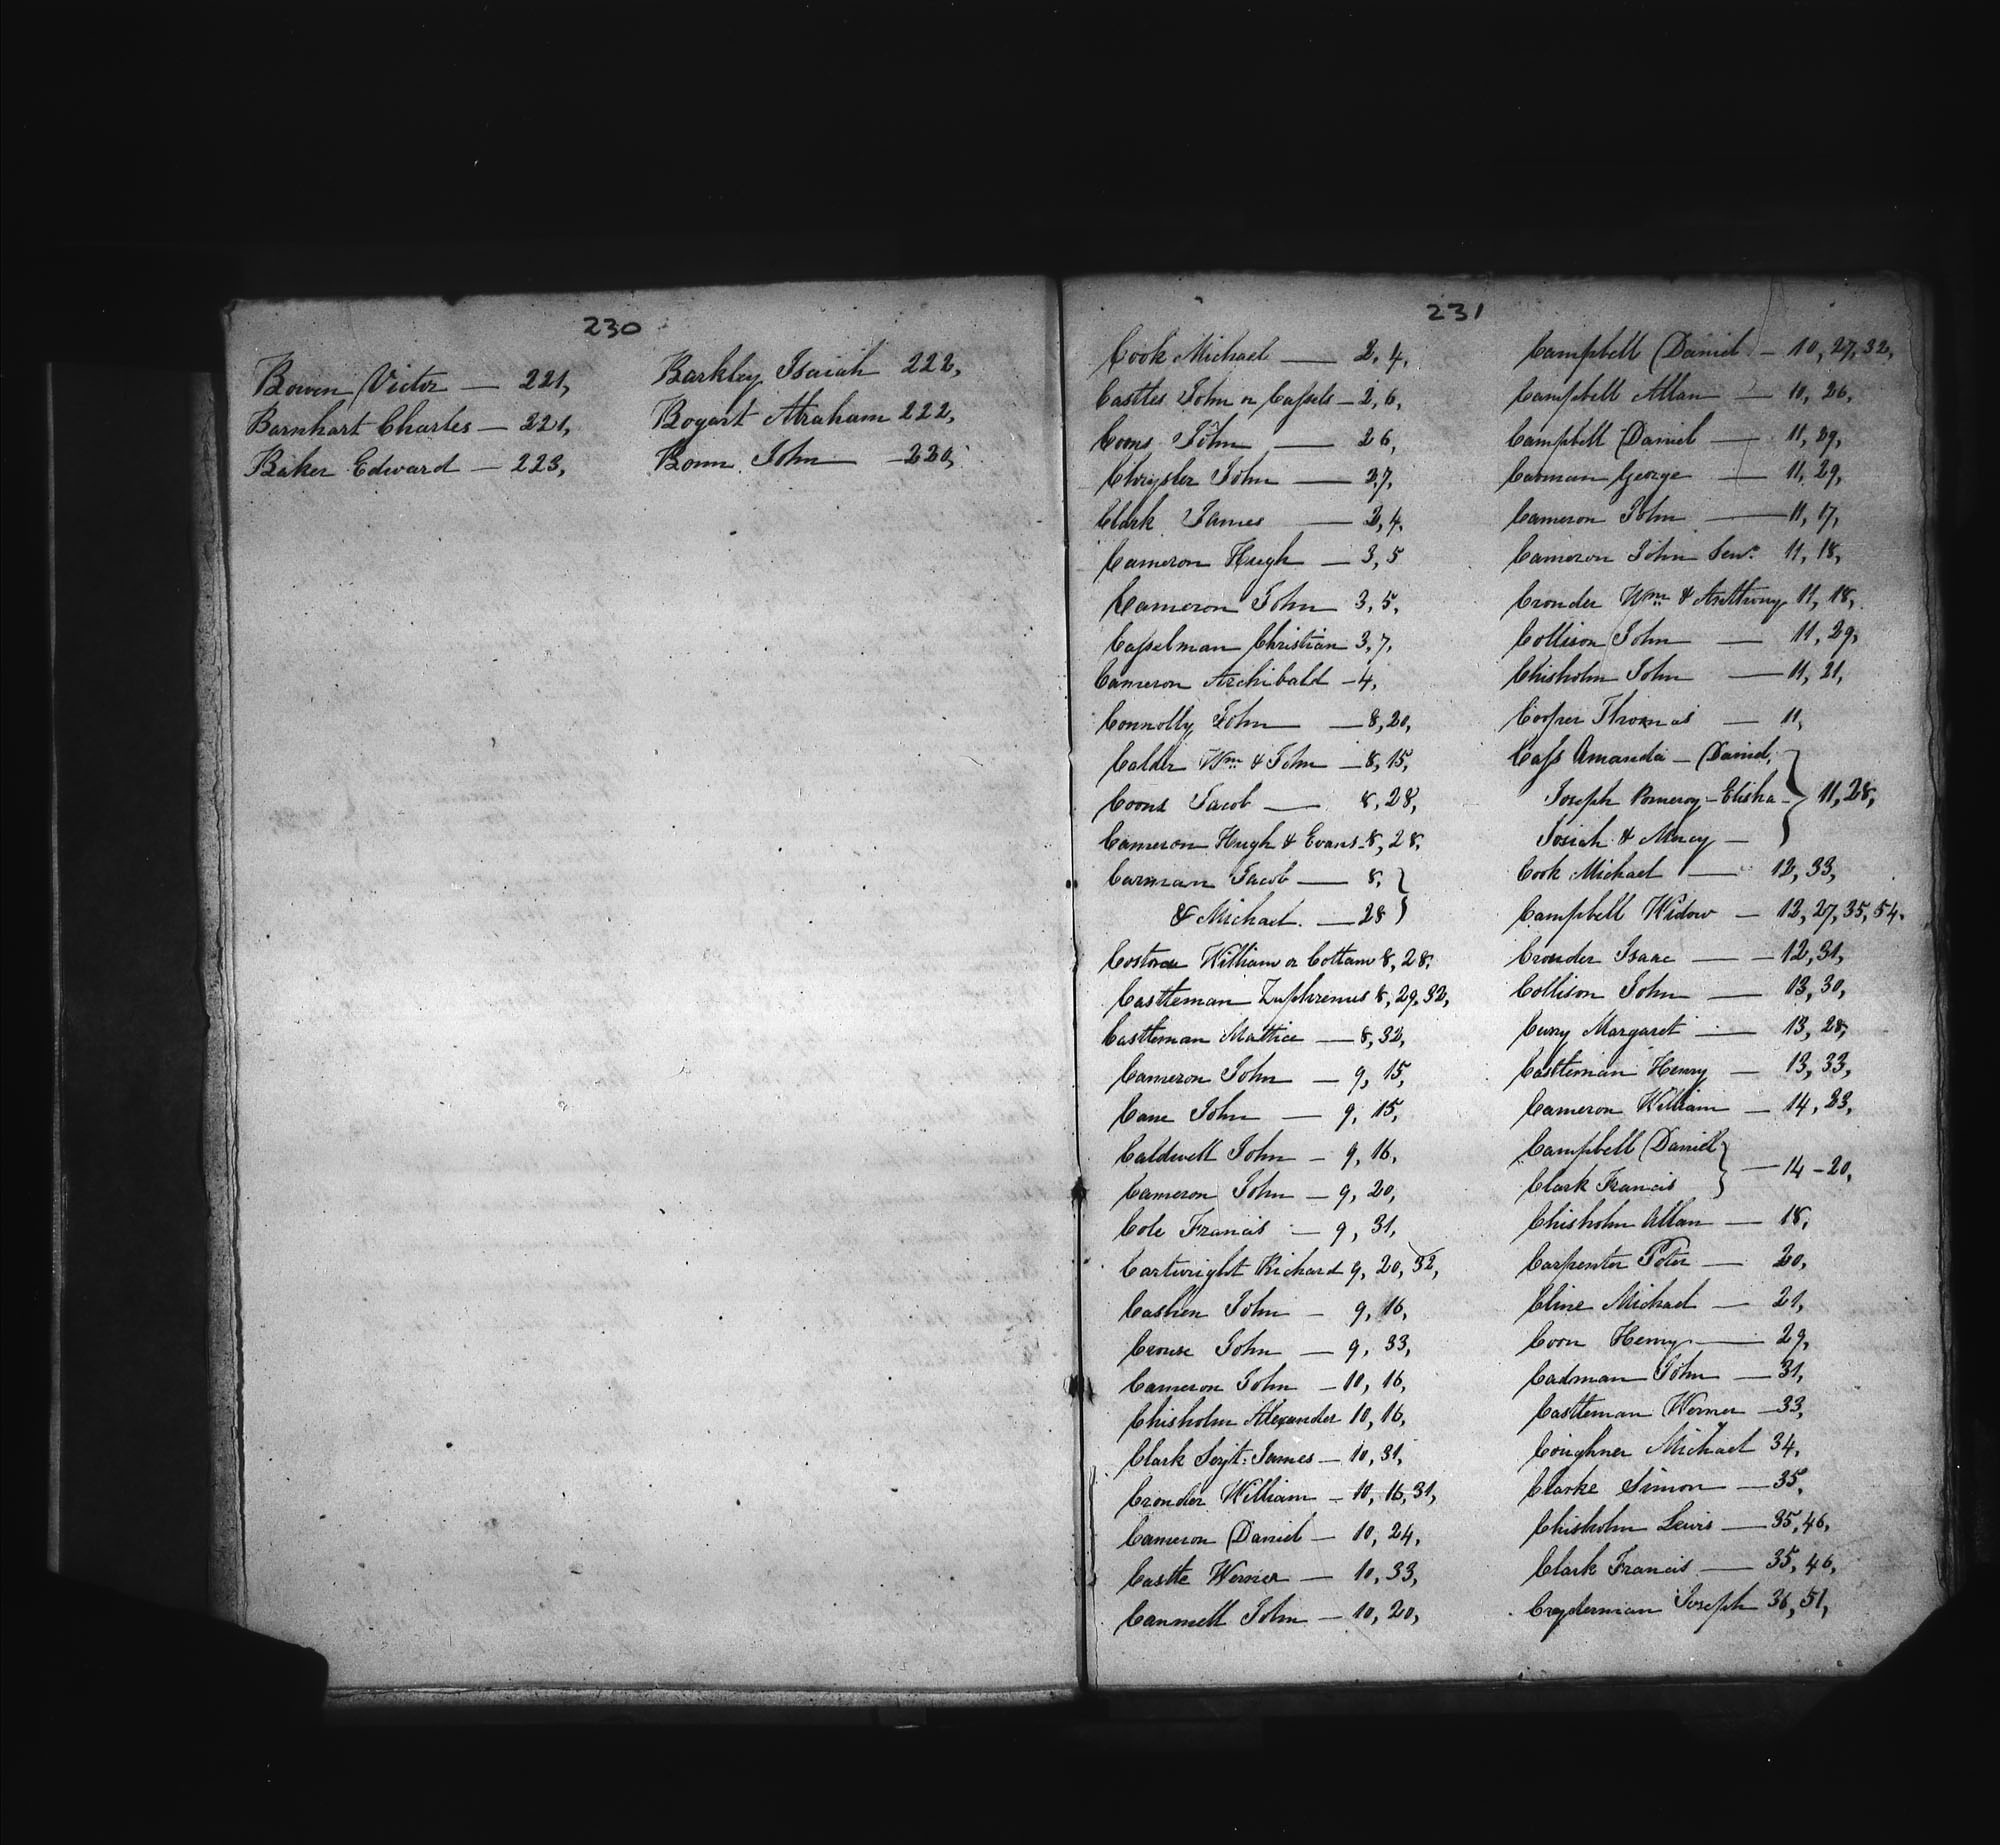 230
Bowen Victor — 221,
Barnhart Charles — 221,
Baker Edward — 223,
Barkley Isaiah 222,
Bogart Abraham 222,
Bonn John — 220,
231
Cook Michael — 2, 4,
Castles John or Cassels — 2, 6,
Coons John — 26,
Chrysler John — 27,
Clark James — 2, 4,
Cameron Hugh — 3, 5
Cameron John 3, 5,
Casselman Christian 3, 7,
Cameron Archibald — 4,
Connolly John — 8, 20,
Calder Wm & John — 8, 15,
Coons Jacob — 8, 28,
Cameron Hugh & Evans - 8, 28,
Carman Jacob — 8,
& Michael. — 28
William or Cottam 8, 28,
Castleman Zuphrenus 8, 29, 32,
Castleman Mattice — 8, 32,
Cameron John — 9, 15,
Cane John — 9, 15,
Caldwell John — 9, 16,
Cameron John — 9, 20,
Cole Francis — 9, 31,
Cartwright Richard 9, 20, 32,
Cashen John — 9, 16,
Crouse John — 9, 33,
Cameron John — 10, 16,
Chisholm Alexander 10, 16,
Clark Serjt: James — 10, 31,
Cronder William — 10, 16, 31,
Cameron Daniel — 10, 24,
Castle Werner — 10, 33,
Canmell John — 10, 20,
Campbell Daniel — 10, 27, 32,
Campbell Allan — 10, 26,
Campbell Daniel — 11, 29,
Carman George — 11, 29,
Cameron John — 11, 17,
Cameron John Senr. 11, 18,
Cronder Wm & Anthony 11, 18,
Collison John — 11, 29,
Chisholm John — 11, 21,
Cooper Thomas — 11,
Cass Amanda — Daniel,
Joseph Pomeroy - Elisha — 11, 28,
Josiah & Mercy —
Cook Michael — 12, 33,
Campbell Widow — 12, 27, 35, 54.
Crouder Isaac — 12, 31,
Collison John — 13, 30,
Curry Margaret — 13, 28,
Castleman Henry — 13, 33,
Cameron William — 14, 23,
Campbell Daniel
Clark Francis — 14 - 20,
Chisholm Allan — 18,
Carpenter Peter — 20,
Cline Michael — 21,
Coon Henry — 29,
Cadman John — 31,
Castleman Werner — 33,
Coughner Michael 34,
Clarke Simon — 35,
Chisholm Lewis — 35, 46,
Clark Francis — 35, 46,
Cryderman Joseph 36, 51,